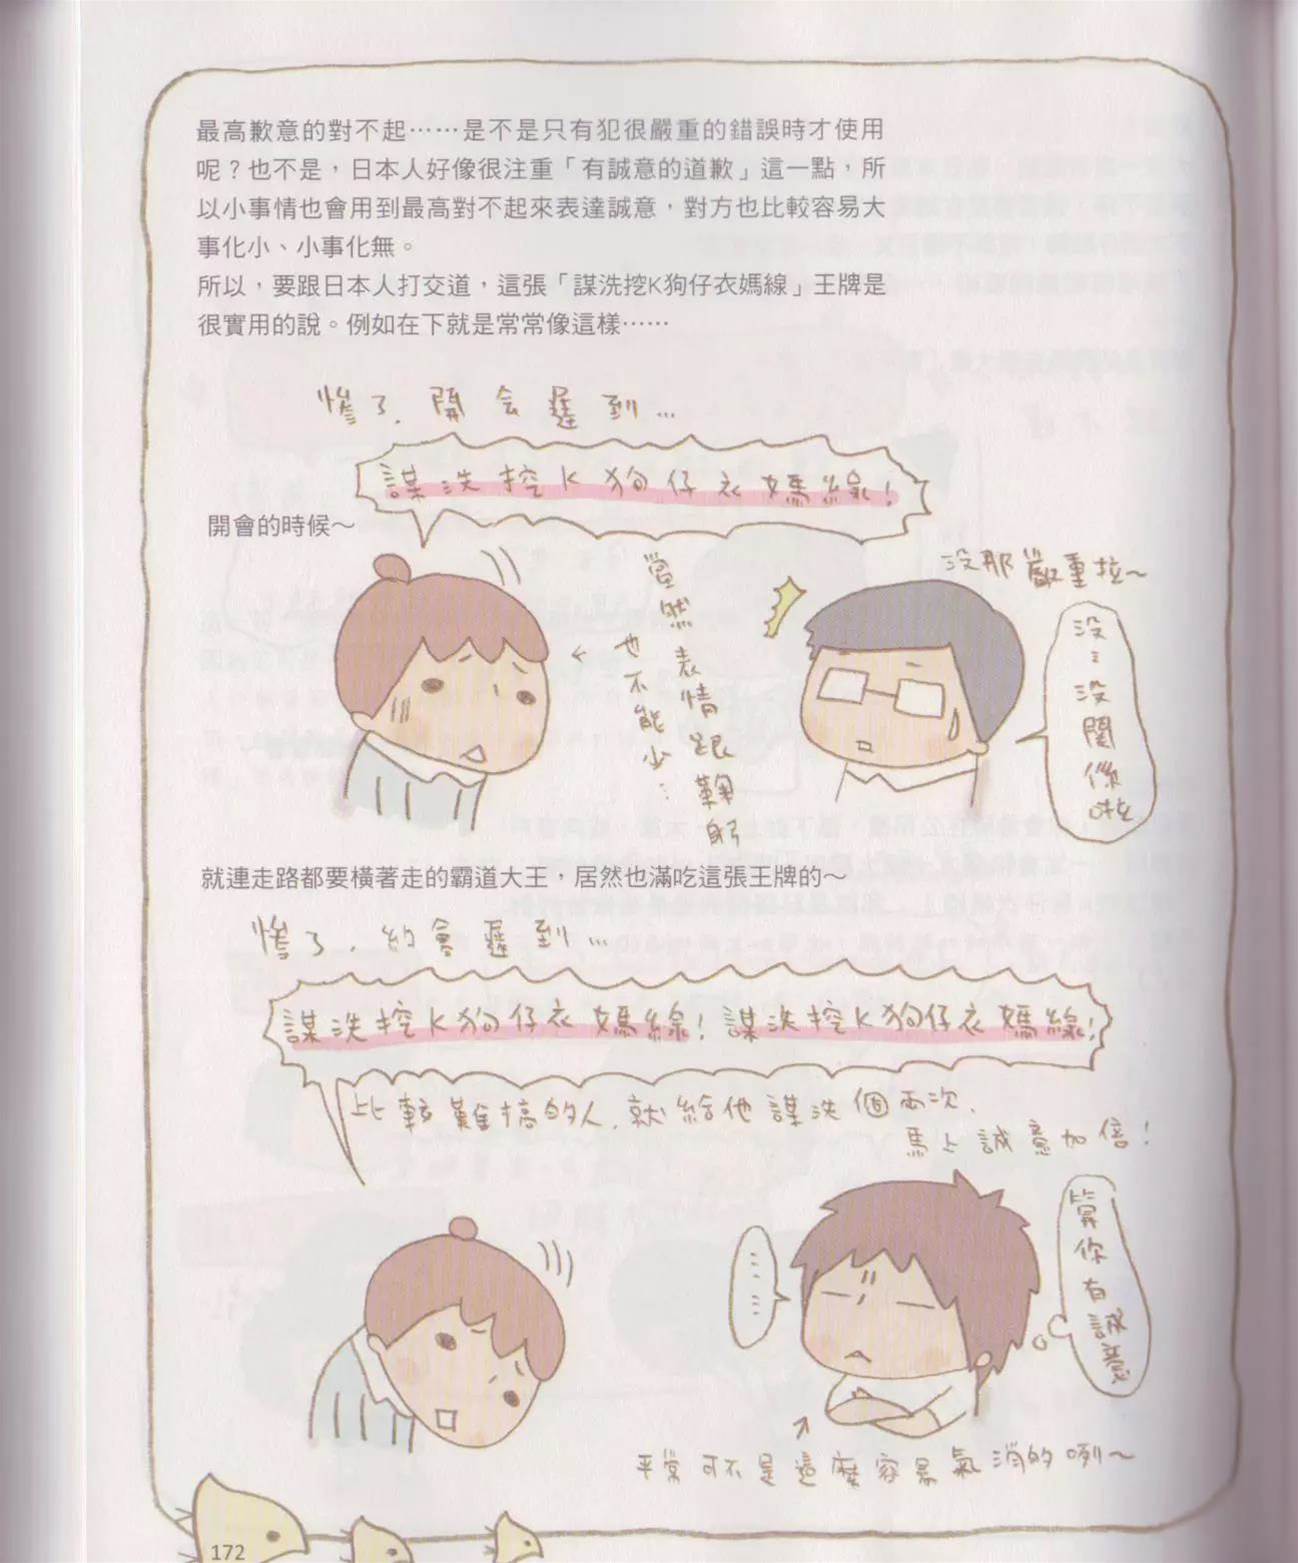 最高歉意的對不起……是不是只有犯很嚴重的錯誤時才使用
呢？也不是，日本人好像很注重「有誠意的道歉」這一點，所
以小事情也會用到最高對不起來表達誠意，對方也比較容易大
事化小、小事化無。
所以，要跟日本人打交道，這張「謀洗挖K狗仔衣媽線」王牌是
很實用的說。例如在下就是常常像這樣……
慘了.開会遲到…
謀洗挖K狗仔衣媽線！
開會的時候～
當然表情跟鞠躬
也不能少…
没那嚴重拉～
没…没關係啦
就連走路都要橫著走的霸道大王，居然也滿吃這張王牌的～
慘了.約會遲到…
謀洗挖K狗仔衣媽線！謀洗挖K狗仔衣媽線！
比較難搞的人.就給他謀洗個兩次.
馬上誠意加倍！
……
算你有誠意
平常可不是這麼容易氣消的咧～
172